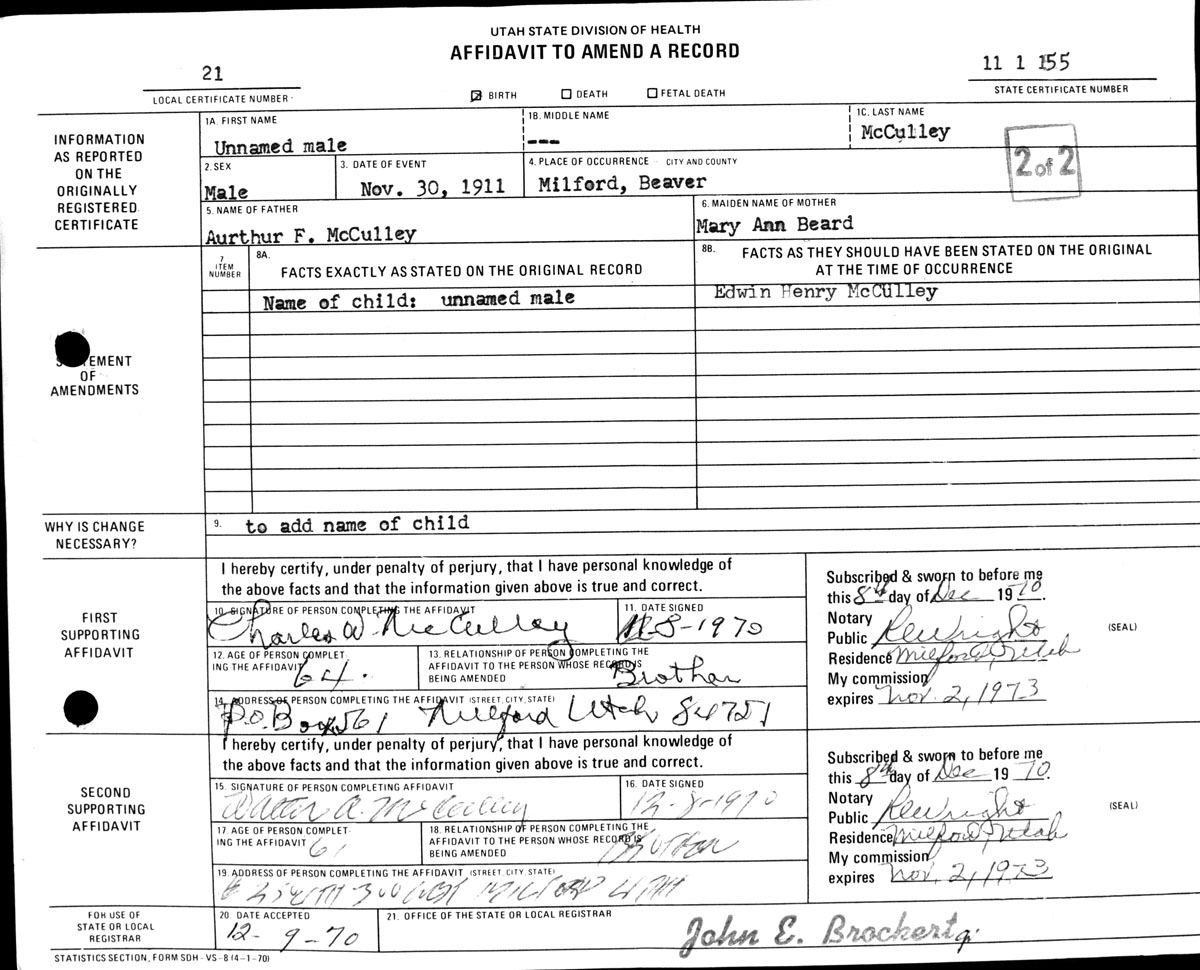 UTAH STATE DIVISION OF HEALTH
AFFIDAVIT TO AMEND A RECORD
21
LOCAL CERTIFICATE NUMBER
☒ BIRTH ☐ DEATH ☐ FETAL DEATH
11 1 155
STATE CERTIFICATE NUMBER
INFORMATION
AS REPORTED
ON THE
ORIGINALLY
REGISTERED
CERTIFICATE
1A. FIRST NAME
Unnamed male
1B. MIDDLE NAME
---
1C. LAST NAME
McCulley
2 of 2
2. SEX
Male
3. DATE OF EVENT
Nov. 30, 1911
4. PLACE OF OCCURRENCE - CITY AND COUNTY
Milford, Beaver
5. NAME OF FATHER
Aurthur F. McCulley
6. MAIDEN NAME OF MOTHER
Mary Ann Beard
STATEMENT
OF
AMENDMENTS
7
ITEM
NUMBER
8A.
FACTS EXACTLY AS STATED ON THE ORIGINAL RECORD
8B. FACTS AS THEY SHOULD HAVE BEEN STATED ON THE ORIGINAL
AT THE TIME OF OCCURRENCE
Name of child: unnamed male
Edwin Henry McCulley
WHY IS CHANGE
NECESSARY?
9. to add name of child
FIRST
SUPPORTING
AFFIDAVIT
I hereby certify, under penalty of perjury, that I have personal knowledge of
the above facts and that the information given above is true and correct.
10. SIGNATURE OF PERSON COMPLETING THE AFFIDAVIT
Charles W. McCulley
11. DATE SIGNED
8-1970
12. AGE OF PERSON COMPLET-
ING THE AFFIDAVIT
64.
13. RELATIONSHIP OF PERSON COMPLETING THE
AFFIDAVIT TO THE PERSON WHOSE RECORD IS
BEING AMENDED
Brother
14. ADDRESS OF PERSON COMPLETING THE AFFIDAVIT (STREET, CITY, STATE)
P.O. Box 561 Milford Utah 84751
Subscribed & sworn to before me
this 8th day of Dec 1970.
Notary
Public
(SEAL)
Residence Milford, Utah
My commission
expires Nov. 2, 1973
SECOND
SUPPORTING
AFFIDAVIT
I hereby certify, under penalty of perjury, that I have personal knowledge of
the above facts and that the information given above is true and correct.
15. SIGNATURE OF PERSON COMPLETING AFFIDAVIT
Walter A. McCulley
16. DATE SIGNED
12-8-1970
17. AGE OF PERSON COMPLET-
ING THE AFFIDAVIT
61
18. RELATIONSHIP OF PERSON COMPLETING THE
AFFIDAVIT TO THE PERSON WHOSE RECORD IS
BEING AMENDED
Brother
19. ADDRESS OF PERSON COMPLETING THE AFFIDAVIT (STREET, CITY, STATE)
300 WEST MILFORD UTAH
Subscribed & sworn to before me
this 8th day of Dec 1970
Notary
Public
(SEAL)
Residence Milford, Utah
My commission
expires Nov. 2, 1973
FOR USE OF
STATE OR LOCAL
REGISTRAR
20. DATE ACCEPTED
12-9-70
21. OFFICE OF THE STATE OR LOCAL REGISTRAR
John E. Brockert
STATISTICS SECTION, FORM SDH-VS-8 (4-1-70)